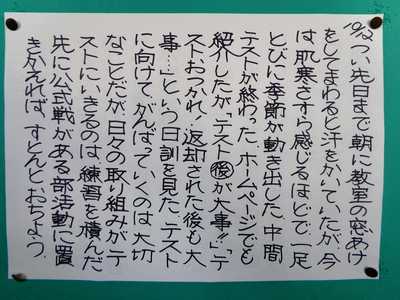 10/12つい先日まで朝に教室の窓あけ
をしてまわると汗をかいていたが、今
は肌寒さすら感じるほどで、一足
とびに季節が動き出した。中間
テストが終わった。ホームページでも
紹介したが、「テスト後が大事!!」「テ
ストおつかれ!返却された後も大
事…」という日訓を見た。テスト
に向けてがんばっていくのは大切
なことだが、日々の取り組みがテ
ストにいきるのは、練習を積んだ
先に公式戦がある部活動に置
きかえれば、すとんとおちよう。